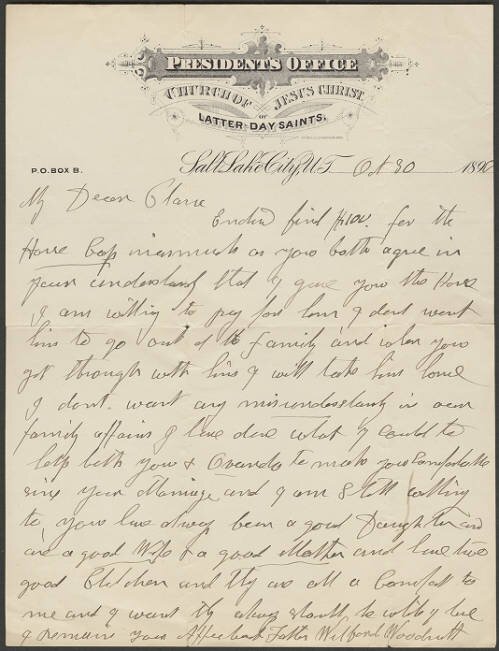 PRESIDENT'S OFFICE
CHURCH OF JESUS CHRIST
OF
LATTER-DAY SAINTS.
P.O. BOX B.
Salt Lake City, U.T. Oct 30 1890
My Dear Clara
find $100. for the
Horse Caps inasmuch as you both agree in
your understand that I gave you the Horse
I am willing to pay for him I dont want
him to go out of the family and when you
get through with him I will take him home
I dont want any misunderstandg in our
family affairs I have done what I could to
help both you & Ovando to make you Comfortable
since your Marriage and I am still willing
to, you have always been a good Daughter and
are a good Wife & a good Mother and have two
good Children and they are all a Comfort to
me and I want thy always should be while I live
I remain your Affectionate Father Wilford Woodruff